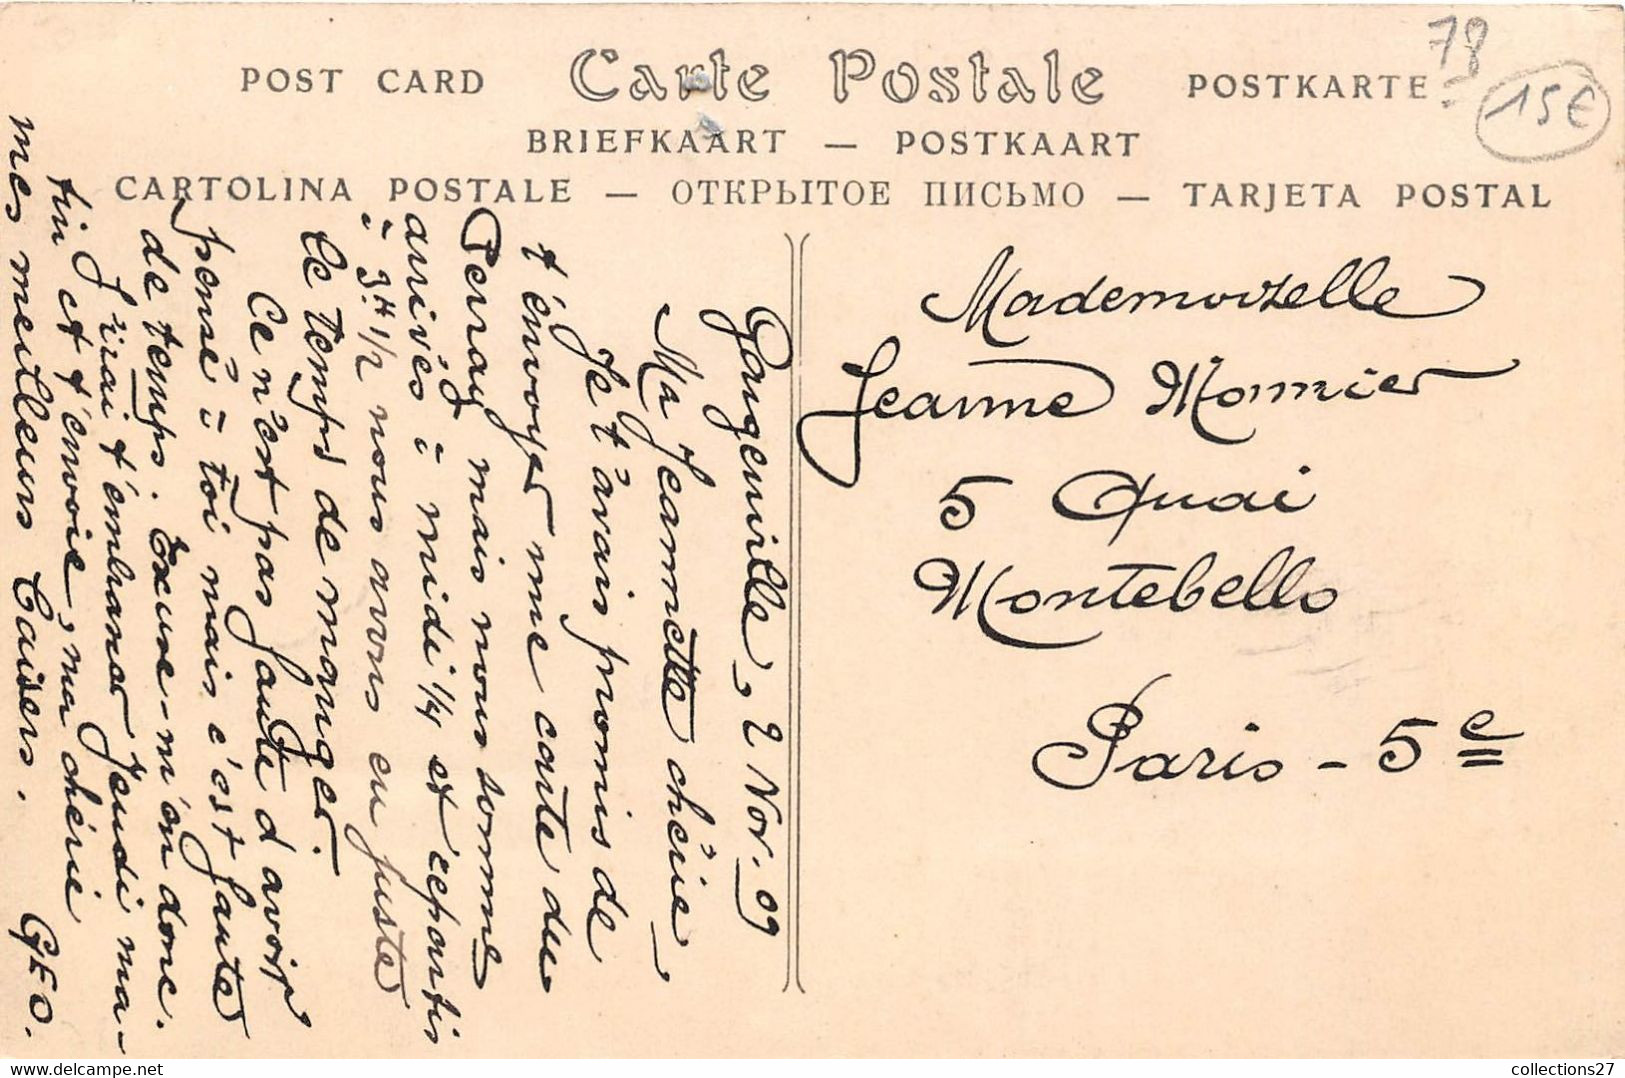 78
15€
POST CARD Carte Postale POSTKARTE
BRIEFKAART — POSTKAART
CARTOLINA POSTALE — ОТКРЫТОЕ ПИСЬМО — TARJETA POSTAL
Gargenville, 2 Nov. 09
Ma Jeannette chérie,
Je t'avais promis de
t'envoyer une carte du
Perray mais nous somme
arrivés à midi 1/4 et repartis
à 3H 1/2 nous avons eu juste
le temps de manger.
Ce n'est pas faute d'avoir
pensé à toi mais c'est faute
de temps. Excuse-m'en donc.
J'irai t'embrasser jeudi ma-
tin et t'envoie, ma chérie
mes meilleurs baisers. GEO.
Mademoiselle
Jeanne Monnier
5 Quai
Montebello
Paris - 5e
collections27